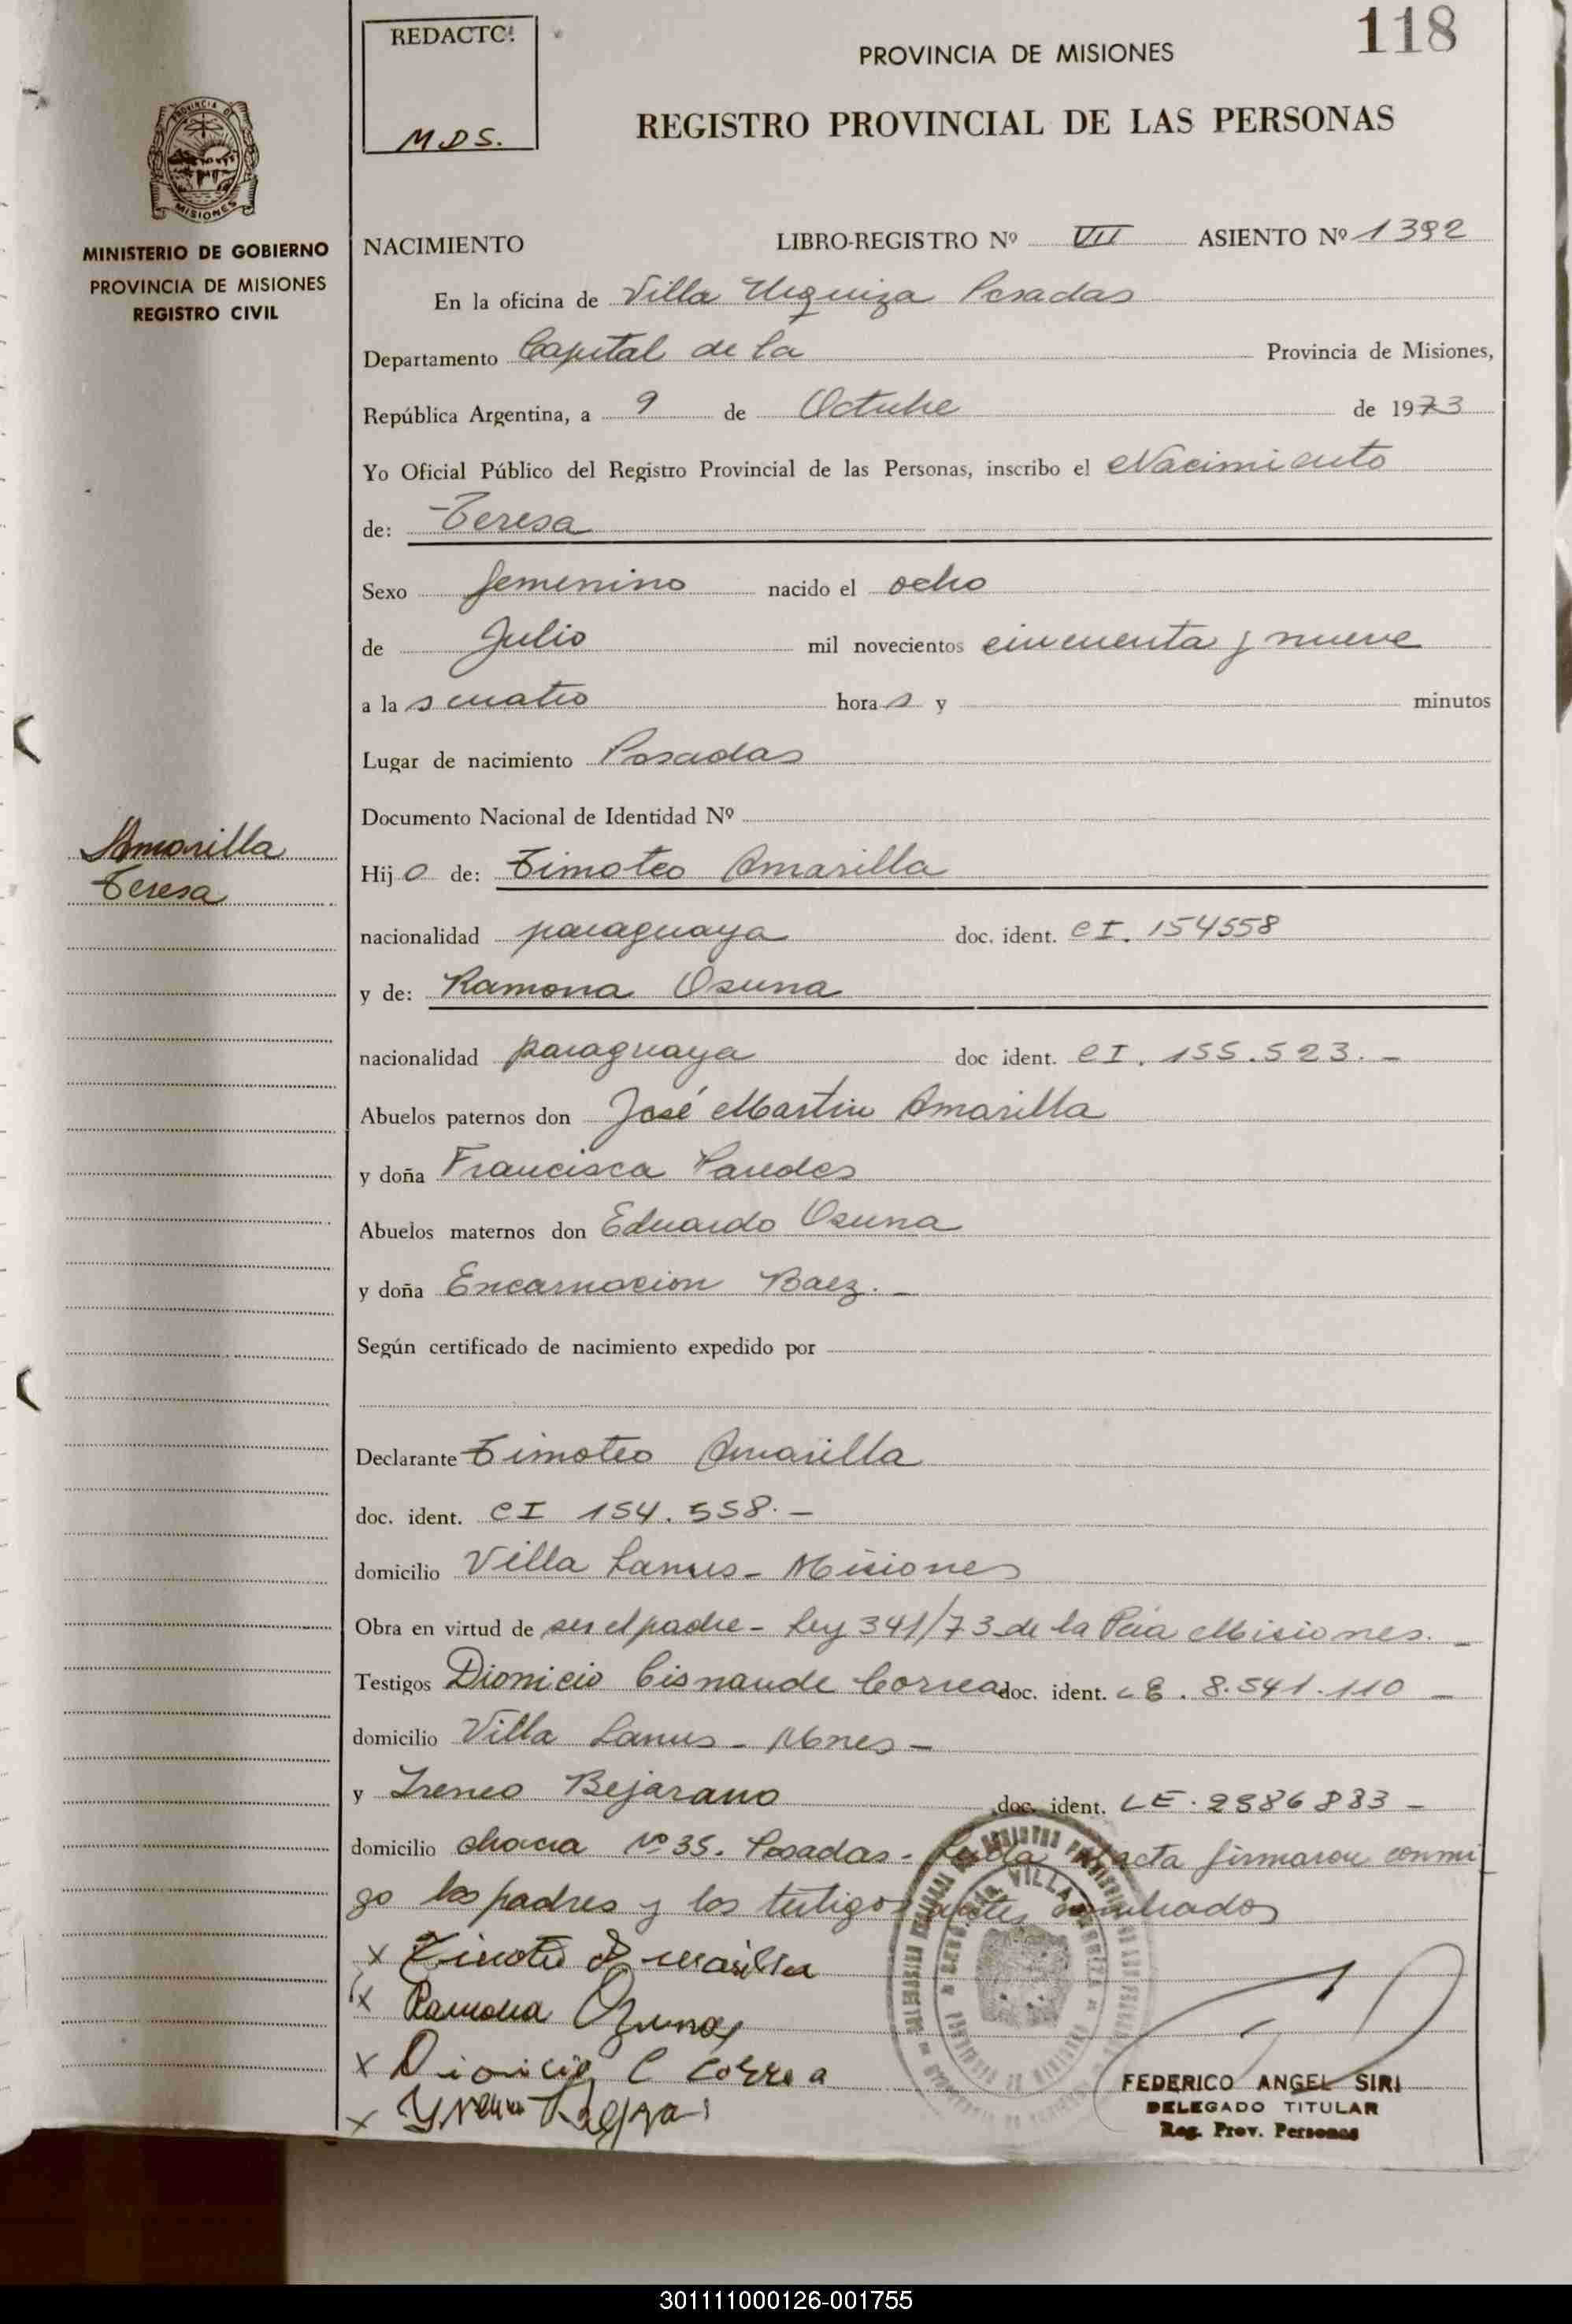 118
REDACTO
M.D.S.
PROVINCIA DE MISIONES
REGISTRO PROVINCIAL DE LAS PERSONAS
PROVINCIA DE
MISIONES
MINISTERIO DE GOBIERNO
PROVINCIA DE MISIONES
REGISTRO CIVIL
NACIMIENTO LIBRO-REGISTRO Nº VII ASIENTO Nº 1392
En la oficina de Villa Urquiza Posadas
Departamento Capital de la Provincia de Misiones,
República Argentina, a 9 de Octubre de 1973
Yo Oficial Público del Registro Provincial de las Personas, inscribo el Nacimiento
de: Teresa
Sexo femenino nacido el ocho
de Julio mil novecientos cincuenta y nueve
a la s cuatro hora s y minutos
Lugar de nacimiento Posadas
Documento Nacional de Identidad Nº
Amarilla
Teresa
Hij o de: Timoteo Amarilla
nacionalidad paraguaya doc. ident. CI. 154558
y de: Ramona Osuna
nacionalidad paraguaya doc ident. CI. 155.523.-
Abuelos paternos don José Martin Amarilla
y doña Francisca Paredes
Abuelos maternos don Eduardo Osuna
y doña Encarnacion Baez.-
Según certificado de nacimiento expedido por
Declarante Timoteo Amarilla
doc. ident. CI 154.558.-
domicilio Villa Lanus - Misiones
Obra en virtud de ser el padre - Ley 341/73 de la Pcia Misiones.-
Testigos Dionicio Cisnande Correa doc. ident. LE. 8.541.110 -
domicilio Villa Lanus - Mnes -
y Ireneo Bejarano doc. ident. LE. 2386833 -
domicilio chacra Nº 35. Posadas - Leida el acta firmaron conmi
go los padres y los testigos antes nombrados
x Timoteo Amarilla
x Ramona Ozuna
x Dionicio C Correa
x
FEDERICO ANGEL SIRI
DELEGADO TITULAR
Reg. Prov. Personas
301111000126-001755